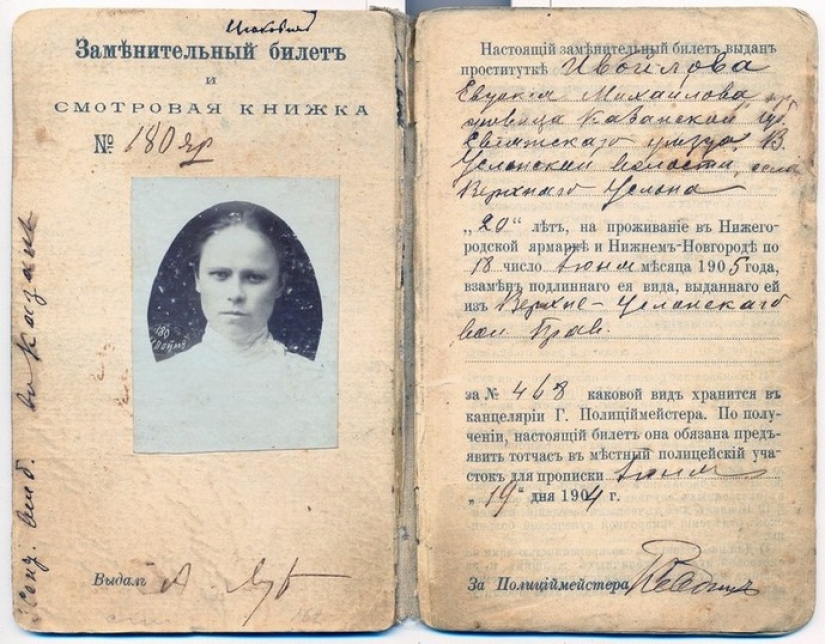 Замѣнительный билетъ
и
СМОТРОВАЯ КНИЖКА
№ 180 яр
180
въ Казань
Выдалъ
Настоящій замѣнительный билетъ выданъ
проституткѣ Ивойлова
Евдокія Михайлова
Казанской губ.
Свіяжскаго уѣзда, В.
Услонской волости, села
Верхняго Услона
„20“ лѣтъ, на проживаніе въ Нижего-
родской ярмаркѣ и Нижнемъ-Новгородѣ по
18 число Іюня мѣсяца 1905 года,
взамѣнъ подлиннаго ея вида, выданнаго ей
изъ Верхне-Услонскаго
вол. Прав.
за № 468 каковой видъ хранится въ
канцеляріи Г. Полиціймейстера. По полу-
ченіи, настоящій билетъ она обязана предъ-
явить тотчасъ въ мѣстный полицейскій уча-
стокъ для прописки Іюня
„19“ дня 1904 г.
За Полиціймейстера